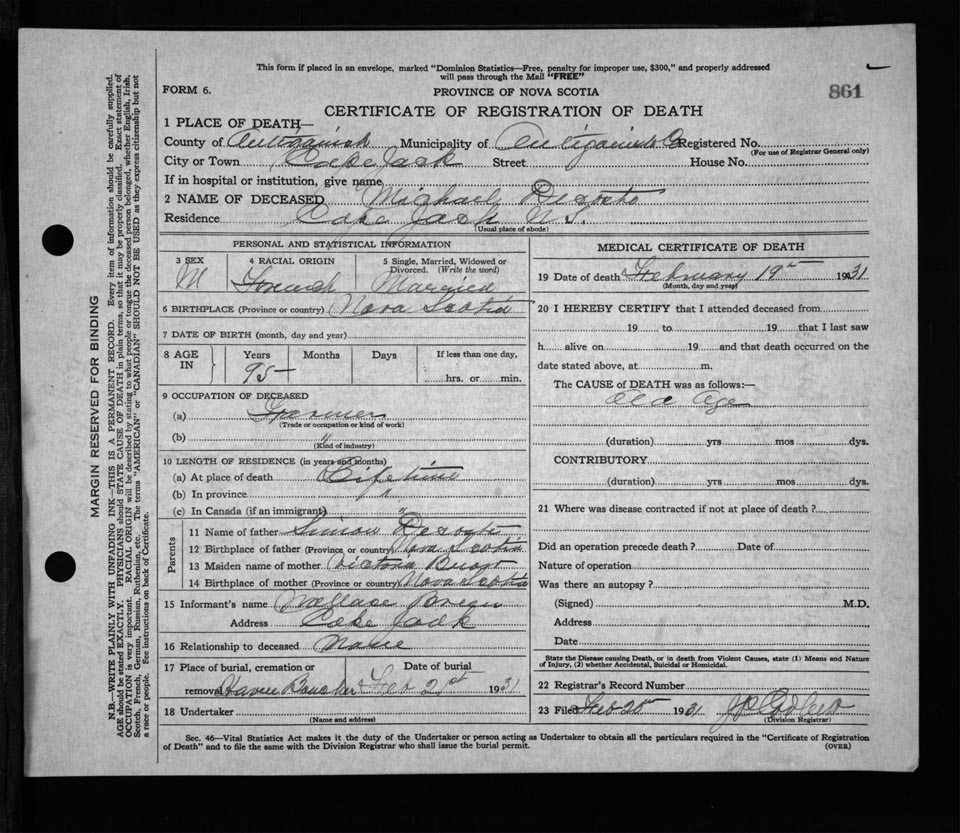 This form if placed in an envelope, marked "Dominion Statistics—Free, penalty for improper use, $300," and properly addressed
will pass through the Mail "FREE"
FORM 6.
PROVINCE OF NOVA SCOTIA
861
CERTIFICATE OF REGISTRATION OF DEATH
1 PLACE OF DEATH—
County of Antigonish Municipality of Antigonish Co Registered No.
(For use of Registrar General only)
City or Town Cape Jack Street House No.
If in hospital or institution, give name
2 NAME OF DECEASED Michael
Residence Cape Jack N.S.
(Usual place of abode)
PERSONAL AND STATISTICAL INFORMATION
3 SEX M
4 RACIAL ORIGIN French
5 Single, Married, Widowed or Divorced. (Write the word) Married
6 BIRTHPLACE (Province or country) Nova Scotia
7 DATE OF BIRTH (month, day and year)
8 AGE IN Years Months Days If less than one day,
95 hrs. or min.
9 OCCUPATION OF DECEASED
(a) Farmer
(Trade or occupation or kind of work)
(b) "
(Kind of industry)
10 LENGTH OF RESIDENCE (in years and months)
(a) At place of death Life time
(b) In province "
(c) In Canada (if an immigrant) "
Parents
11 Name of father Simon
12 Birthplace of father (Province or country) Nova Scotia
13 Maiden name of mother Victoria
14 Birthplace of mother (Province or country) Nova Scotia
15 Informant's name Wallace
Address Cape Jack
16 Relationship to deceased None
17 Place of burial, cremation or removal Havre Boucher
Date of burial Feb 21st 1931
18 Undertaker
(Name and address)
MEDICAL CERTIFICATE OF DEATH
19 Date of death February 19th 1931
(Month, day and year)
20 I HEREBY CERTIFY that I attended deceased from
19 to 19 that I last saw
h alive on 19 and that death occurred on the
date stated above, at m.
The CAUSE of DEATH was as follows:—
Old Age
(duration) yrs mos dys.
CONTRIBUTORY
(duration) yrs mos dys.
21 Where was disease contracted if not at place of death?
Did an operation precede death? Date of
Nature of operation
Was there an autopsy?
(Signed) M.D.
Address
Date
State the Disease causing Death, or in death from Violent Causes, state (1) Means and Nature
of Injury, (2) whether Accidental, Suicidal or Homicidal.
22 Registrar's Record Number
23 Filed Feb 20th 1931
(Division Registrar)
Sec. 46—Vital Statistics Act makes it the duty of the Undertaker or person acting as Undertaker to obtain all the particulars required in the "Certificate of Registration
of Death" and to file the same with the Division Registrar who shall issue the burial permit.
(OVER)
MARGIN RESERVED FOR BINDING
N.B.—WRITE PLAINLY WITH UNFADING INK—THIS IS A PERMANENT RECORD. Every item of information should be carefully supplied.
AGE should be stated EXACTLY. PHYSICIANS should STATE CAUSE OF DEATH in plain terms, so that it may be properly classified. Exact statement of
OCCUPATION is very important. RACIAL ORIGIN will be described by stating to what people or tongue the deceased person belonged, whether English, Irish,
Scotch, French, German, Russian, Ruthenian, etc. The terms "AMERICAN" or "CANADIAN" SHOULD NOT BE USED as they express citizenship but not
a race or people. See instructions on back of Certificate.